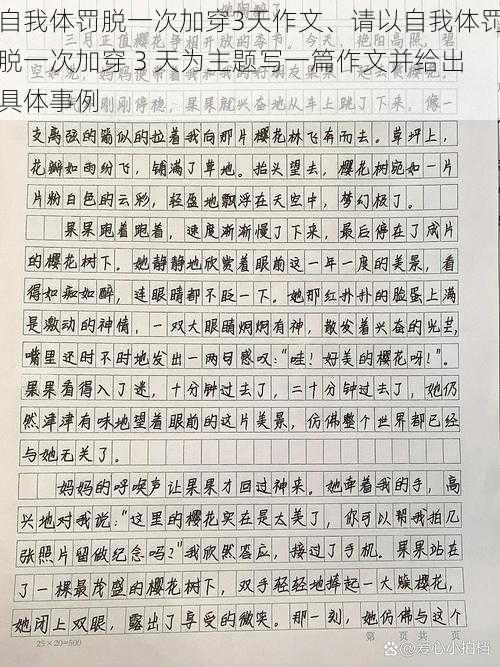 自我体罚脱一次加穿3天作文、请以自我体罚
脱一次加穿 3 天为主题写一篇作文并给出
具体事例
三月正值樱花争相开放的季节。今天，艳阳高照，碧
刚刚停稳，果果就兴奋地从车上跳了下来，像一
支离弦的箭似的拉着我向那片樱花林飞奔而去。草坪上，
花瓣如雨纷飞，铺满了草地。抬头望去，樱花树宛如一片
片粉白色的云彩，轻盈地飘浮在天空中，梦幻极了。
果果跑着跑着，速度渐渐慢了下来，最后停在了成片
的樱花树下。她静静地欣赏着眼前这一年一度的美景，看
得如痴如醉，连眼睛都不眨一下。她那红扑扑的脸蛋上满
是激动的神情，一双大眼睛炯炯有神，散发着兴奋的光芒，
嘴里还时不时地发出一两句感叹：“哇！好美的樱花呀！”。
果果看得入了迷，十分钟过去了，二十分钟过去了，她仍
然津津有味地望着眼前的这片美景，仿佛整个世界都已经
与她无关了。
妈妈的呼唤声让果果才回过神来。她牵着我的手，高
兴地对我说：“这里的樱花实在是太美了，你可以帮我拍几
张照片留做纪念吗？”我欣然答应，接过了手机。果果站在
了一棵最茂盛的樱花树下，双手轻轻地捧起一大簇樱花，
她闭上双眼，露出了享受的微笑。那一刻，她仿佛与这个
25×20=500
第 页 共 页
@爱心小拍档